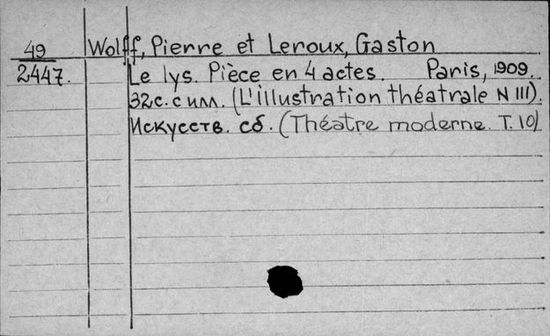 49 Wolff, Pierre et Leroux, Gaston
2447. Le lys. Pièce en 4 actes. Paris, 1909.
32 с. с илл. (L'illustration théatrale N 111).
Искусств. сб. (Théatre moderne. T. 10)